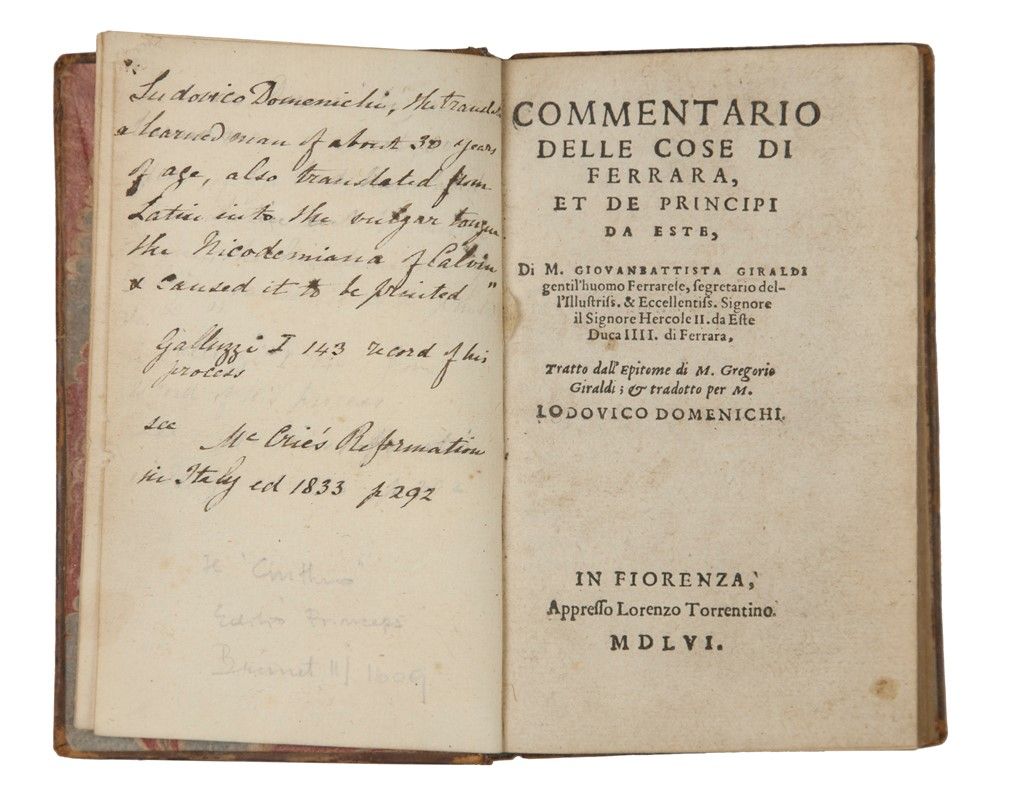 Ludovico Domenichi, the transl
a learned man of about 30 years
of age, also translated from
Latin into the vulgar tongue
the Nicodemiana of Calvin
& caused it to be printed "
Galluzzi I, 143 record of his
process
see
Mc Crie's Reformation
in Italy ed 1833 p 292
Editio Princeps
Brunet II / 1609
COMMENTARIO
DELLE COSE DI
FERRARA,
ET DE PRINCIPI
DA ESTE,
Di M. GIOVANBATTISTA GIRALDI
gentil'huomo Ferrarese, segretario del-
l'Illustriss. & Eccellentiss. Signore
il Signore Hercole II. da Este
Duca IIII. di Ferrara,
Tratto dall'Epitome di M. Gregorio
Giraldi; & tradotto per M.
LODOVICO DOMENICHI.
IN FIORENZA,
Appresso Lorenzo Torrentino.
MDLVI.